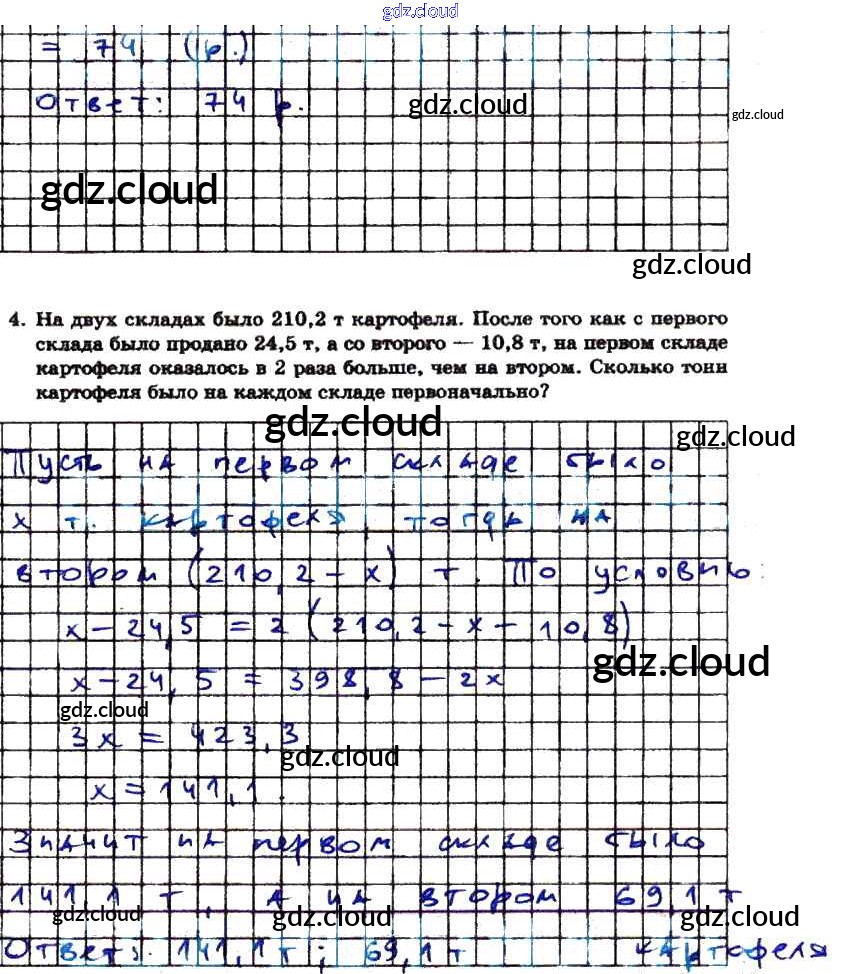 gdz.cloud
= 74 (р.)
Ответ: 74 р.
gdz.cloud
gdz.cloud
gdz.cloud
gdz.cloud
4. На двух складах было 210,2 т картофеля. После того как с первого
склада было продано 24,5 т, а со второго — 10,8 т, на первом складе
картофеля оказалось в 2 раза больше, чем на втором. Сколько тонн
картофеля было на каждом складе первоначально?
gdz.cloud
gdz.cloud
Пусть на первом складе было
x т. картофеля, тогда на
втором (210,2 - x) т. По условию:
x - 24,5 = 2 (210,2 - x - 10,8)
gdz.cloud
x - 24,5 = 398,8 - 2x
gdz.cloud
3x = 423,3
gdz.cloud
x = 141,1.
Значит на первом складе было
141,1 т, а на втором 69,1 т
gdz.cloud gdz.cloud gdz.cloud
Ответ: 141,1 т; 69,1 т картофеля